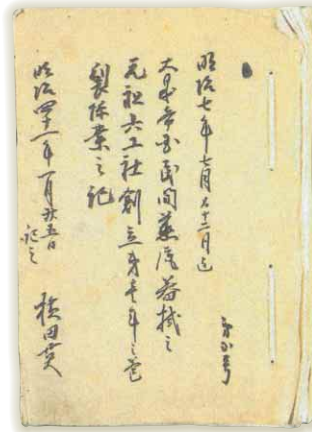 明治七年七月ゟ十二月迄
大日本帝国民間蒸汽器械之
元祖六工社創立第壱年之巻
製糸業之記
明治四十一年一月廿五日
記之
横田英